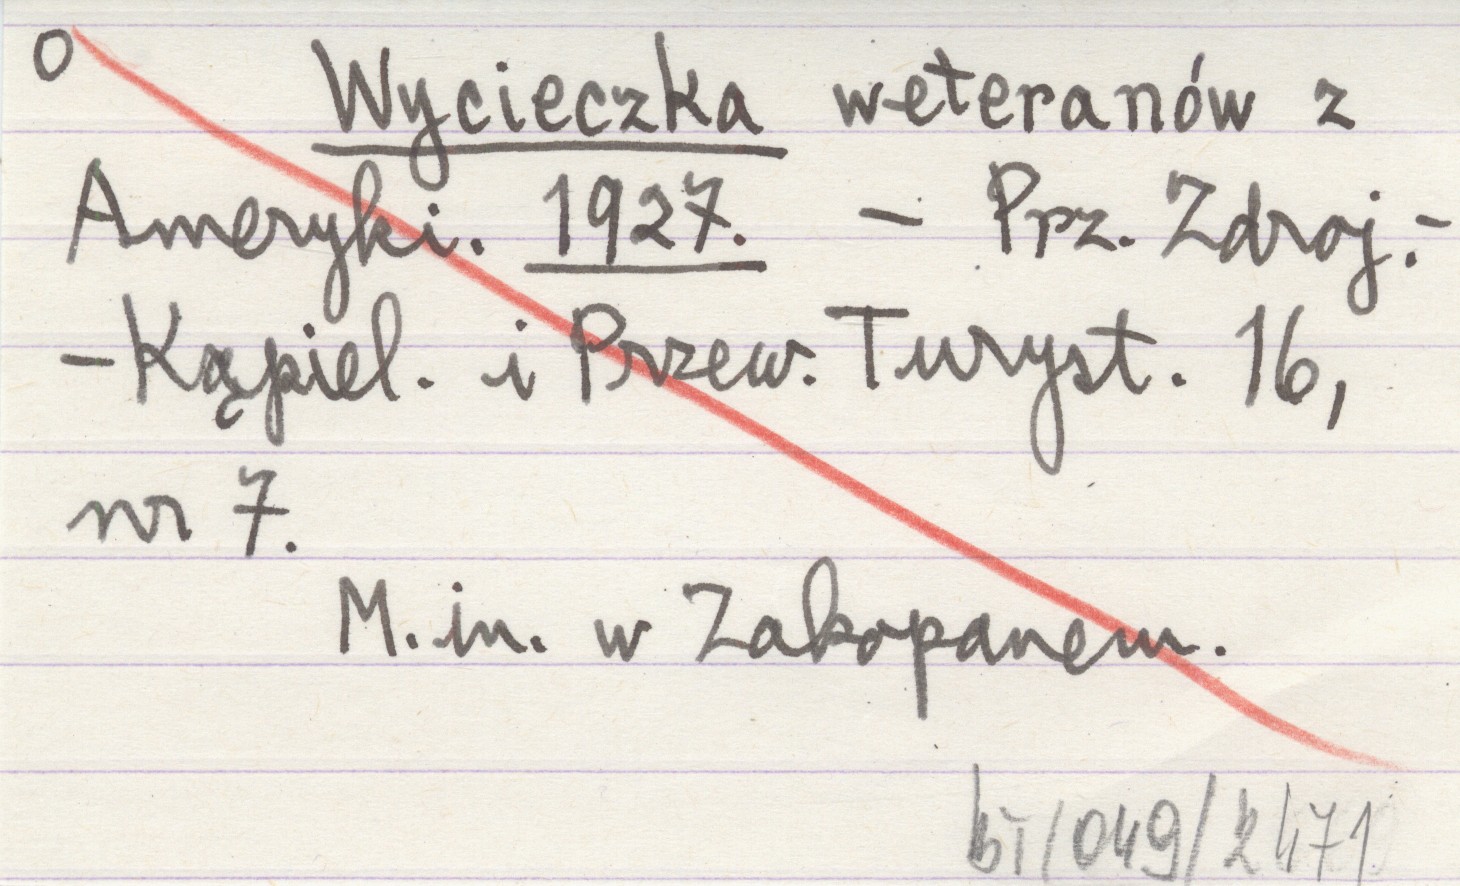 O Wycieczka weteranów z
Ameryki. 1927. - Prz. Zdroj.-
-Kąpiel. i Przew. Turyst. 16,
nr 7.
M.in. w Zakopanem.